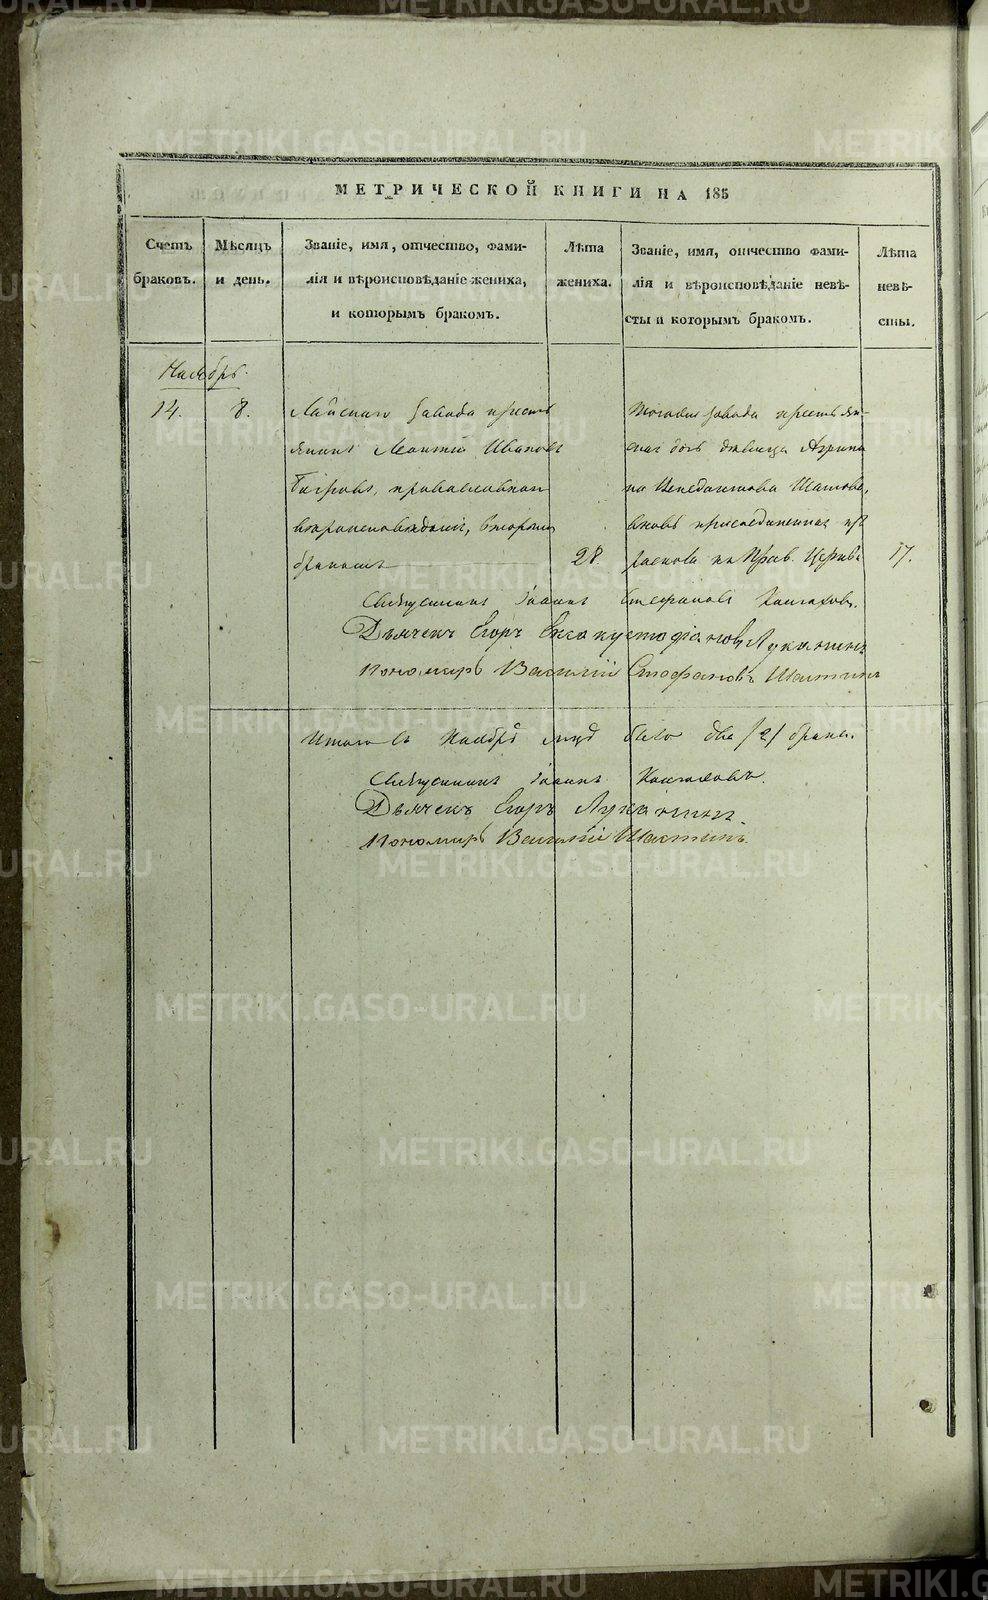 МЕТРИЧЕСКОЙ КНИГИ НА 185
Счетъ браковъ.
Мѣсяцъ и день.
Званіе, имя, отчество, фами-
лія и вѣроисповѣданіе жениха,
и которымъ бракомъ.
Лѣта жениха.
Званіе, имя, отчество фами-
лія и вѣроисповѣданіе невѣ-
сты и которымъ бракомъ.
Лѣта невѣ-
сты.
Ноябрь.
14.
8.
Лайскаго завода кресть
янинъ Леонтій Ивановъ
православнаго
вѣроисповѣданія, вторымъ
бракомъ
28.
Тогоже завода крестьян-
ская дочь девица Агрипи
на
вновь присоединенная изъ
раскола къ Прав. Церкви
17.
Священникъ Іоаннъ Стефановъ
Дьячекъ Егоръ Луканинъ
Пономарь Василій Стефановъ Шастинъ
Итого въ Ноябрѣ м-цѣ было два /2/ брака.
Священникъ Іоаннъ
Дьячекъ Егоръ Луканинъ.
Пономарь Василій Шастинъ.
METRIKI.GASO-URAL.RU